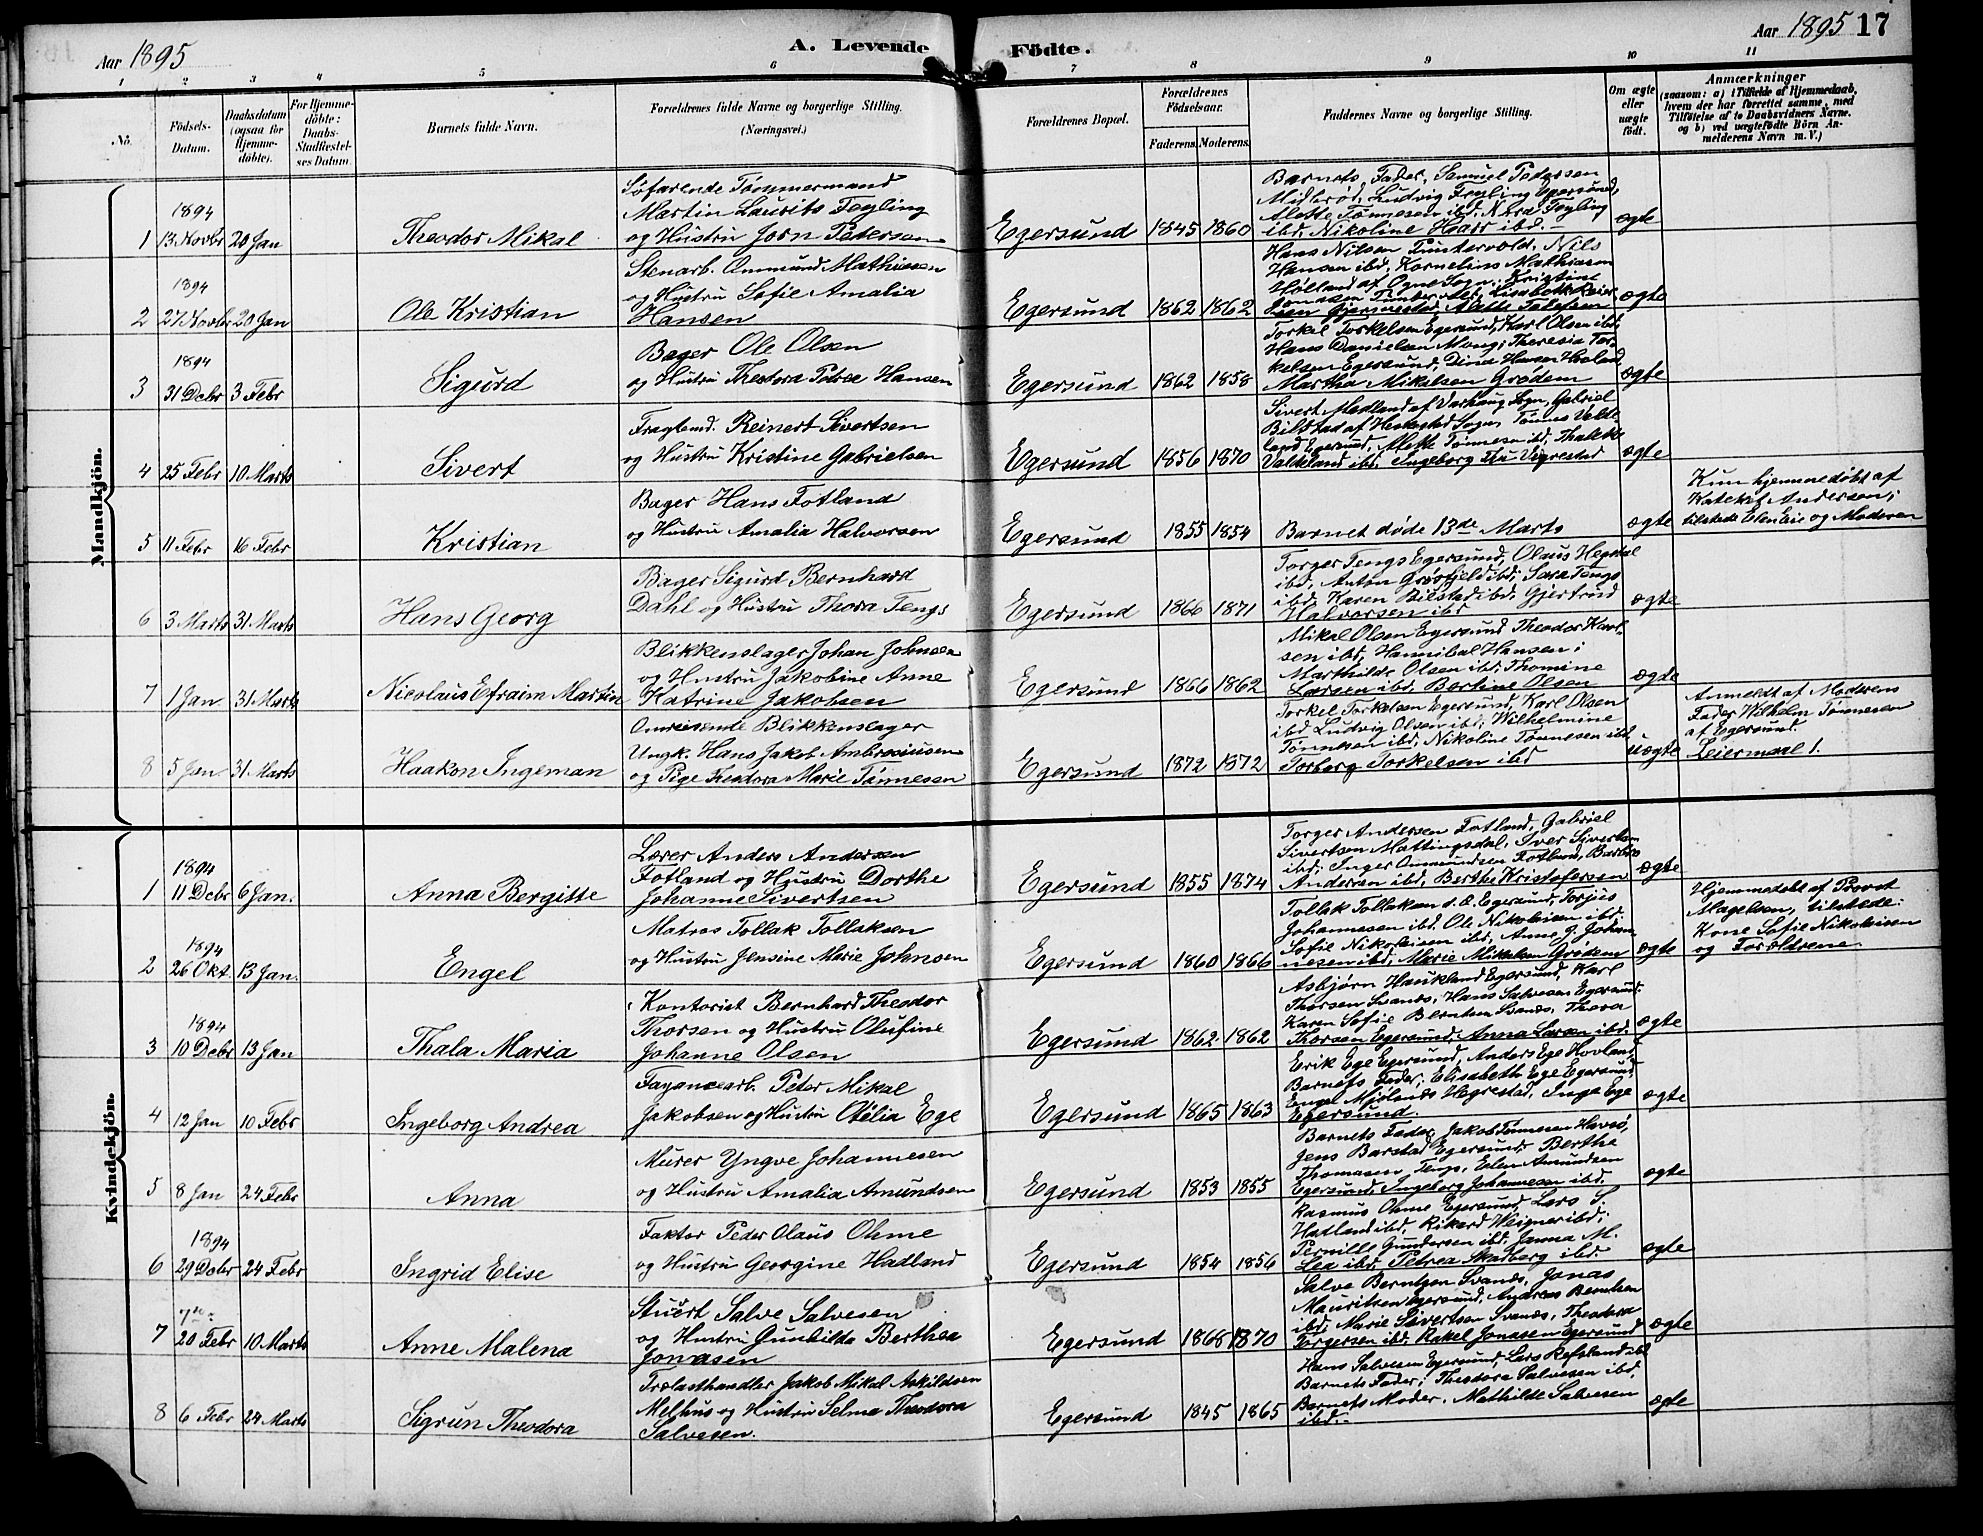 Aar 1895
A. Levende Födte.
Aar 1895 17
1 2 3 4 5 6 7 8 9 10 11
No.
Födsels-
Datum.
Daabsdatum
(ogsaa for
Hjemme-
döbte).
For Hjemme-
döbte:
Daabs-
Stadfæstel-
ses Datum.
Barnets fulde Navn.
Forældrenes fulde Navne og borgerlige Stilling.
(Næringsvei.)
Forældrenes Bopæl.
Forældrenes
Födselsaar.
Faderens.
Moderens.
Faddernes Navne og borgerlige Stilling.
Om ægte
eller
uægte
födt.
Anmærkninger
(saasom: a) i Tilfælde af Hjemmedaab,
hvem der har forrettet samme, med
Tilföielse af to Daabsvidners Navne.
og b) ved uægtefödte Börn An-
melderens Navn m. V.)
Mandkjön.
1
1894
13 Novbr
20 Jan
Theodor Mikal
Søfarende Tømmermand
Martin Laurits Feyling
og Hustru Jorn Petersen
Egersund
1845
1860
Barnets Fader, Samuel Pedersen
Midbrød, Ludvig Feyling Egersund,
Alette Tønnesen ibd., Nora Feyling
ibd. Nikoline Haar ibd. –
ægte
2
1894
27 Novbr
20 Jan
Ole Kristian
Stenarb. Ommund Mathiesen
og Hustru Sofie Amalia
Hansen
Egersund
1862
1862
Hans Nilsen Tuntervold, Nils
Hansen ibd., Kornelius Mathiasen
Hølland af Ogne Sogn, Kristine
ægte
3
1894
31 Debr
3 Febr
Sigurd
Bager Ole Olsen
og Hustru Theodora Petrea Hansen
Egersund
1862
1858
Torkel Torkelsen Egersund, Karl Olsen ibd,
Hans Danielsen Mong, Theresia Tor-
kelsen Egersund, Dina Hansen Hovland
Martha Mikelsen Grødem
ægte
4
25 Febr
10 Marts
Sivert
Fragtemd. Reinert Sivertsen
og Hustru Kristine Gabrielsen
Egersund
1856
1870
Sivert Madland af Varhaug Sogn, Gabriel
Bilstad af Heskestad Sogn, Tønnes Velde
land Egersund, Mette Tønnesen ibd, Thalette
Valdeland ibd., Ingeborg Vigrestad
ægte
5
11 Febr
16 Febr
Kristian
Bager Hans Fotland
og Hustru Amalia Halvorsen
Egersund
1855
1854
Barnet døde 13de Marts
ægte
Kun hjemmedøbt af
Kateket Andersen;
tilstede Elen Eie og Moderen
6
3 Marts
31 Marts
Hans Georg
Bager Sigurd Bernhard
Dahl og Hustru Thora Tengs
Egersund
1866
1871
Torger Tengs Egersund, Olaus Hegdal
ibd, Anton Grøsfjeld ibd, Sara Tengs
ibd. Karen Bilstad ibd. Gjertrud
Halvorsen ibd
ægte
7
1 Jan
31 Marts
Nicolaus Efraim Martin
Blikkenslager Johan Johnsen
og Hustru Jakobine Anne
Katrine Jakobsen
Egersund
1866
1862
Mikal Olsen Egersund Theodor Karl-
sen ibd, Hannibal Hansen;
Marthilde Olsen ibd, Thomine
Larsen ibd, Bertine Olsen
ægte
8
5 Jan
31 Marts
Haakon Ingeman
Omreisende Blikkenslager
Ungk. Hans Jakob Ambrosiusen
og Pige Teodora Marie Tønnesen
Egersund
1872
1872
Torkel Torkelsen Egersund, Karl Olsen
ibd Ludvig Olsen ibd, Wilhelmine
Tønnesen ibd, Nikoline Tønnesen ibd
Torborg Torkelsen ibd
uægte
Anmeldt af Moderens
Fader Wilhelm Tønnesen
af Egersund.
Leiermaal 1.
Kvindekjön.
1
1894
11 Debr
6 Jan.
Anna Bergitte
Lærer Anders Andersen
Fotland og Hustru Dorthe
Johanne Sivertsen
Egersund
1855
1874
Torger Andersen Fotland, Gabriel
Sivertsen Mattingsdal, Iver Sivertsen
ibd, Inger Ommundsen Fotland, Barbro
Andersen ibd, Berthe Kristofersen
ægte
2
1894
26 Okt.
13 Jan.
Engel
Matros Tollak Tollaksen
og Hustru Jensine Marie Johnsen
Egersund
1860
1866
Tollak Tollaksen d. E. Egersund, Torjus
Johannesen ibd. Ole Nikolaisen ibd.
Sofie Nikolaisen ibd, Anne G. Johan-
nesen ibd, Marie Mikelsen Grødem
ægte
Hjemmedøbt af Provst
Magelsen, tilstede:
Kone Sofie Nikolaisen
og Forældrene.
3
1894
10 Debr
13 Jan
Thala Maria
Kontorist Bernhard Theodor
Thorsen og Hustru Olufine
Johanne Olsen
Egersund
1862
1862
Asbjørn Haukland Egersund, Karl
Thorsen Svanes, Hans Salvesen Egersund
Karen Sofie Berntsen Svanes, Thora
Thorsen Egersund, Anna Larsen ibd.
ægte
4
12 Jan
10 Febr
Ingeborg Andrea
Fayancearb. Peter Mikal
Jakobsen og Hustru Otelia Ege
Egersund
1865
1863
Erik Ege Egersund, Anders Ege Hovland,
Barnets Fader, Elisabeth Ege Egersund
Engel Mjølands Hegrestad, Inga Ege
Egersund.
ægte
5
8 Jan
24 Febr
Anna
Murer Yngve Johannesen
og Hustru Amalia Amundsen
Egersund
1853
1855
Barnets Fader, Jakob Tønnesen Havsø,
Jens Barstad Egersund, Berthe
Thomasen Tengs, Elen Amundsen
Egersund, Ingeborg Johannesen ibd.
ægte
6
1894
29 Debr
24 Febr
Ingrid Elise
Faktor Peder Olaus Ohme
og Hustru Georgine Hadland
Egersund
1854
1856
Rasmus Ohme Egersund, Lars S.
Hatland ibd, Rikard Weigner ibd;
Pernille Gundersen ibd. Janna M.
Lea ibd, Petrea Skadberg ibd.
ægte
7
20 Febr
10 Marts
Anne Malena
Stuert Salve Salvesen
og Hustru Gunhilda Berthea
Jonasen
Egersund
1865
1870
Salve Berntsen Svanes, Jonas
Mauritsen Egersund, Andreas Berntsen
ibd, Marie Sivertsen Svanes, Theodora
Torgersen ibd, Rakel Jonasen Egersund
ægte
8
6 Febr
24 Marts
Sigrun Theodora
Trælasthandler Jakob Mikal Askildsen
Melhus og Hustru Selma Theodora
Salvesen.
Egersund
1845
1865
Hans Salvesen Egersund, Lars Refsland ibd
Barnets Fader, Theodora Salvesen ibd,
Barnets Moder, Mathilde Salvesen
ibd. –
ægte